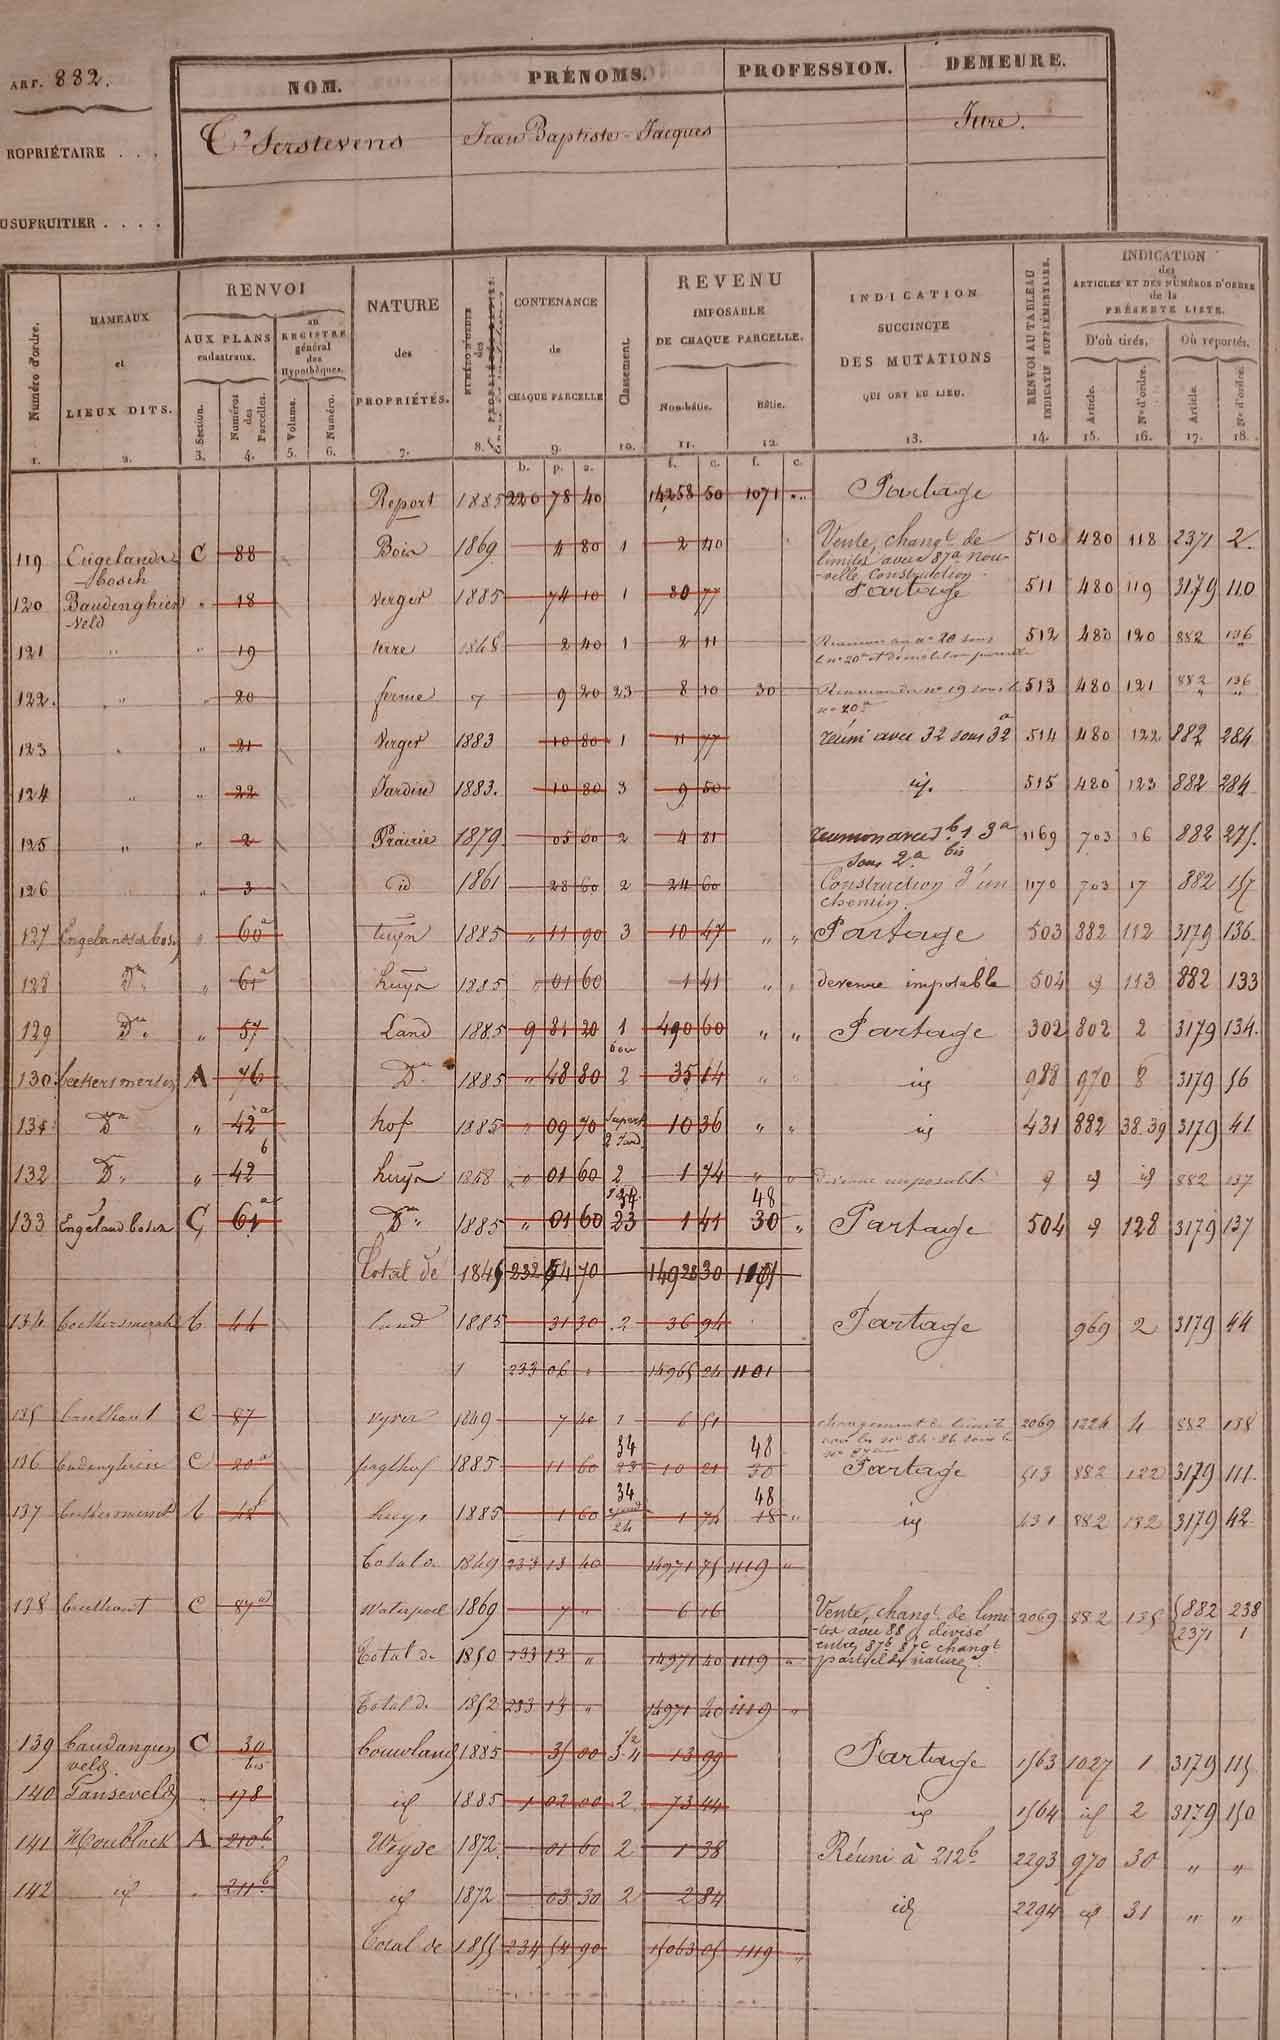 ART. 882.
NOM. PRÉNOMS. PROFESSION. DEMEURE.
ROPRIÉTAIRE . . . T'Serstevens Jean Baptiste-Jacques Ittre.
USUFRUITIER . . . .
Numéro d'ordre. HAMEAUX et LIEUX DITS. RENVOI AUX PLANS cadastraux. Section. Numéros des Parcelles. au REGISTRE général des Hypothèques. Volume. Numéro. NATURE des PROPRIÉTÉS. CONTENANCE de CHAQUE PARCELLE Classement. REVENU IMPOSABLE DE CHAQUE PARCELLE. Non-bâtie. Bâtie. INDICATION SUCCINCTE DES MUTATIONS QUI ONT EU LIEU. RENVOI AU TABLEAU INDICATIF SUPPLÉMENTAIRE. INDICATION des ARTICLES ET DES NUMÉROS D'ORDRE de la PRÉSENTE LISTE. D'où tirés. Article. No d'ordre. Où reportés. Article. No d'ordre.
1. 2. 3. 4. 5. 6. 7. 8. 9. 10. 11. 12. 13. 14. 15. 16. 17. 18.
b. p. a. f. c. f. c.
Report 1885 220 78 40 14258 50 1071 " Partage
119 Engelands bosch C 88 Bois 1869 4 80 1 2 40 Vente, changt de limites avec 87a nouvelle construction 510 480 118 2371 2
120 Baudenghien veld " 18 Verger 1885 74 10 1 80 77 Partage 511 480 119 3179 110
121 " " 19 terre 1848 2 40 1 2 11 512 480 120 882 136
122. " " 20 ferme " 9 20 23 8 10 30 513 480 121 882 136
123 " " 21 Verger 1883 10 80 1 11 77 réuni avec 32 sous 32a 514 480 122 882 284
124 " " 22 Jardin 1883. 10 80 3 9 50 id. 515 480 123 882 284
125 " " 2 Prairie 1879 05 60 2 4 81 sous 2a bis 1169 703 16 882 275.
126 " " 3 id 1861 28 60 2 24 60 Construction d'un chemin. 1170 703 17 882 157
127 Engelandsch bosch " 60a tuyn 1885 " 11 90 3 10 47 " " Partage 503 882 112 3179 136
128 Do " 61a huys 1885 " 01 60 1 41 " " devenue imposable 504 id 113 882 133
129 Do " 57 Land 1885 9 81 20 1 490 60 " " Partage 302 802 2 3179 134.
130 A 76 Do 1885 " 48 80 2 35 14 " " id 988 970 8 3179 56
131 Do " 42a hof 1885 " 09 70 10 36 " " id 431 882 38.39 3179 41
132 Do " 42b huys 1848 " 01 60 2 1 74 " " devenue imposable id id id 882 137
133 Engeland bosch C 61a Do 1885 " 01 60 23 1 41 48 30 " Partage 504 id 128 3179 137
Total de 1845 232 54 70 14928 30 1101
134 44 land 1885 31 30 2 36 94 Partage 969 2 3179 44
233 06 " 14965 24 1101
135 C 87 vyver 1849 7 40 1 6 51 2069 1224 4 882 138
136 C 20a 1885 11 60 34 23 10 21 48 30 Partage 513 882 122 3179 111
137 42b huys 1885 1 60 34 24 1 74 48 18 " id 431 882 132 3179 42
Total de 1849 233 13 40 14971 75 1119 "
138 C 87a Waterpoel 1869 7 " 6 16 Vente, changt de limites avec 88 & divisé entre 87b 87c changt partiel de nature 2069 882 135 882 238 2371 1
Total de 1850 233 13 " 14971 40 1119 "
Total de 1852 233 13 " 14971 40 1119 "
139 Baudangien veld. C 30 bis bouwland 1885 35 00 3.4 13 99 Partage 1563 1027 1 3179 115
140 " 178 id 1885 1 02 00 2 73 44 id 1564 id 2 3179 150
141 Moublock A 210b Weyde 1872 01 60 2 1 38 Réuni à 212b 2293 970 30 " "
142 id " 211b id 1872 03 30 2 2 84 id 2294 id 31 " "
Total de 1855 234 54 90 15063 05 1119 "